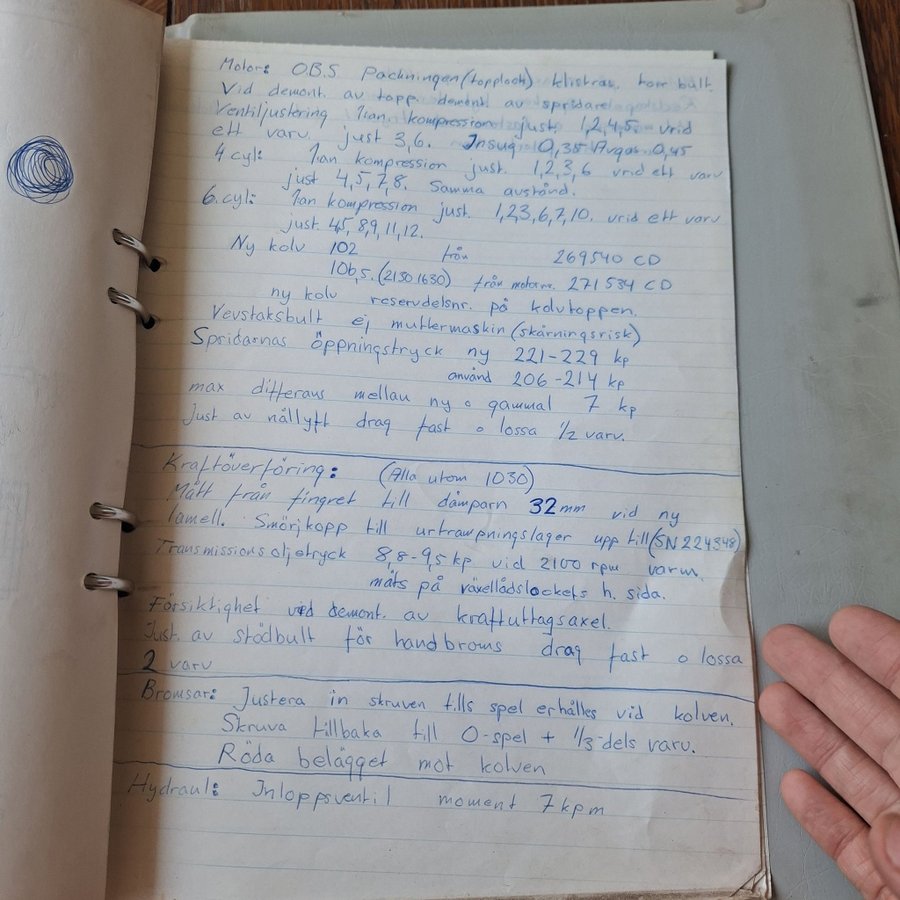 Motor: O.B.S Packningen (topplock) klistras, torr bult.
Vid demont. av topp. demont av spridare
Ventiljustering 1:an kompression just. 1,2,4,5 vrid
ett varv. just 3,6. Insug 0,35 Avgas 0,45
4 cyl: 1an kompression just. 1,2,3,6 vrid ett varv
just 4,5,7,8. Samma avstånd.
6.cyl: 1an kompression just. 1,2,3,6,7,10. vrid ett varv
just. 4,5,8,9,11,12.
Ny kolv 102 från 269540 CD
106,5. (2150 1630) från motornr. 271534 CD
ny kolv reservdelsnr. på kolvtoppen.
Vevstaksbult ej muttermaskin (skärningsrisk)
Spridarnas öppningstryck ny 221-229 kp
använd 206-214 kp
max differans mellan ny o gammal 7 kp
Just av nållyft drag fast o lossa 1/2 varv.
Kraftöverföring: (Alla utom 1030)
Mått från fingret till dämparn 32mm vid ny
lamell. Smörjkopp till urtrampningslager upp till (SN 224348)
Transmissionsoljetryck 8,8-9,5 kp vid 2100 rpm varm.
mäts på växellådslockets h. sida.
Försiktighet vid demont. av kraftuttagsaxel.
Just. av stödbult för handbroms drag fast o lossa
2 varv
Bromsar: Justera in skruven tills spel erhålles vid kolven.
Skruva tillbaka till 0-spel + 1/3-dels varv.
Röda belägget mot kolven
Hydraul: Inloppsventil moment 7 kpm